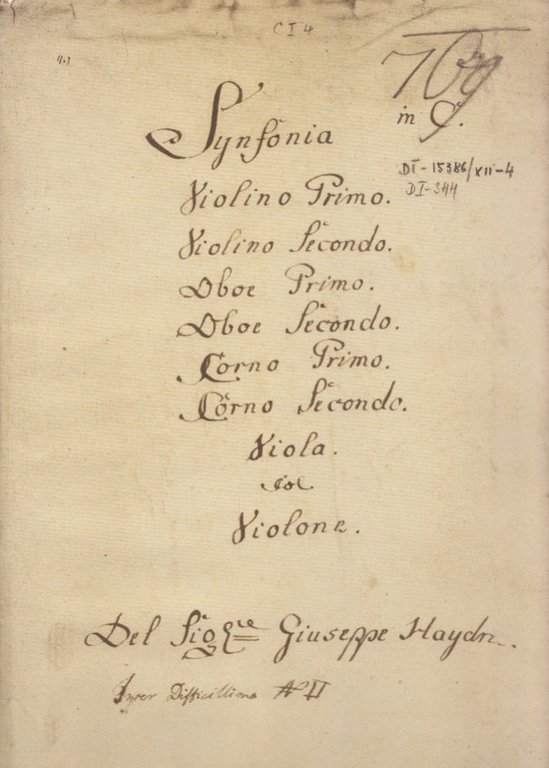 C I 4
4.)
769
in C.
Synfonia
DI-15386/XII-4
DI-344
Violino Primo.
Violino Secondo.
Oboe Primo.
Oboe Secondo.
Corno Primo.
Corno Secondo.
Viola.
Col
Violone.
Del Sigre Giuseppe Haydn.
Inter Difficillima No II